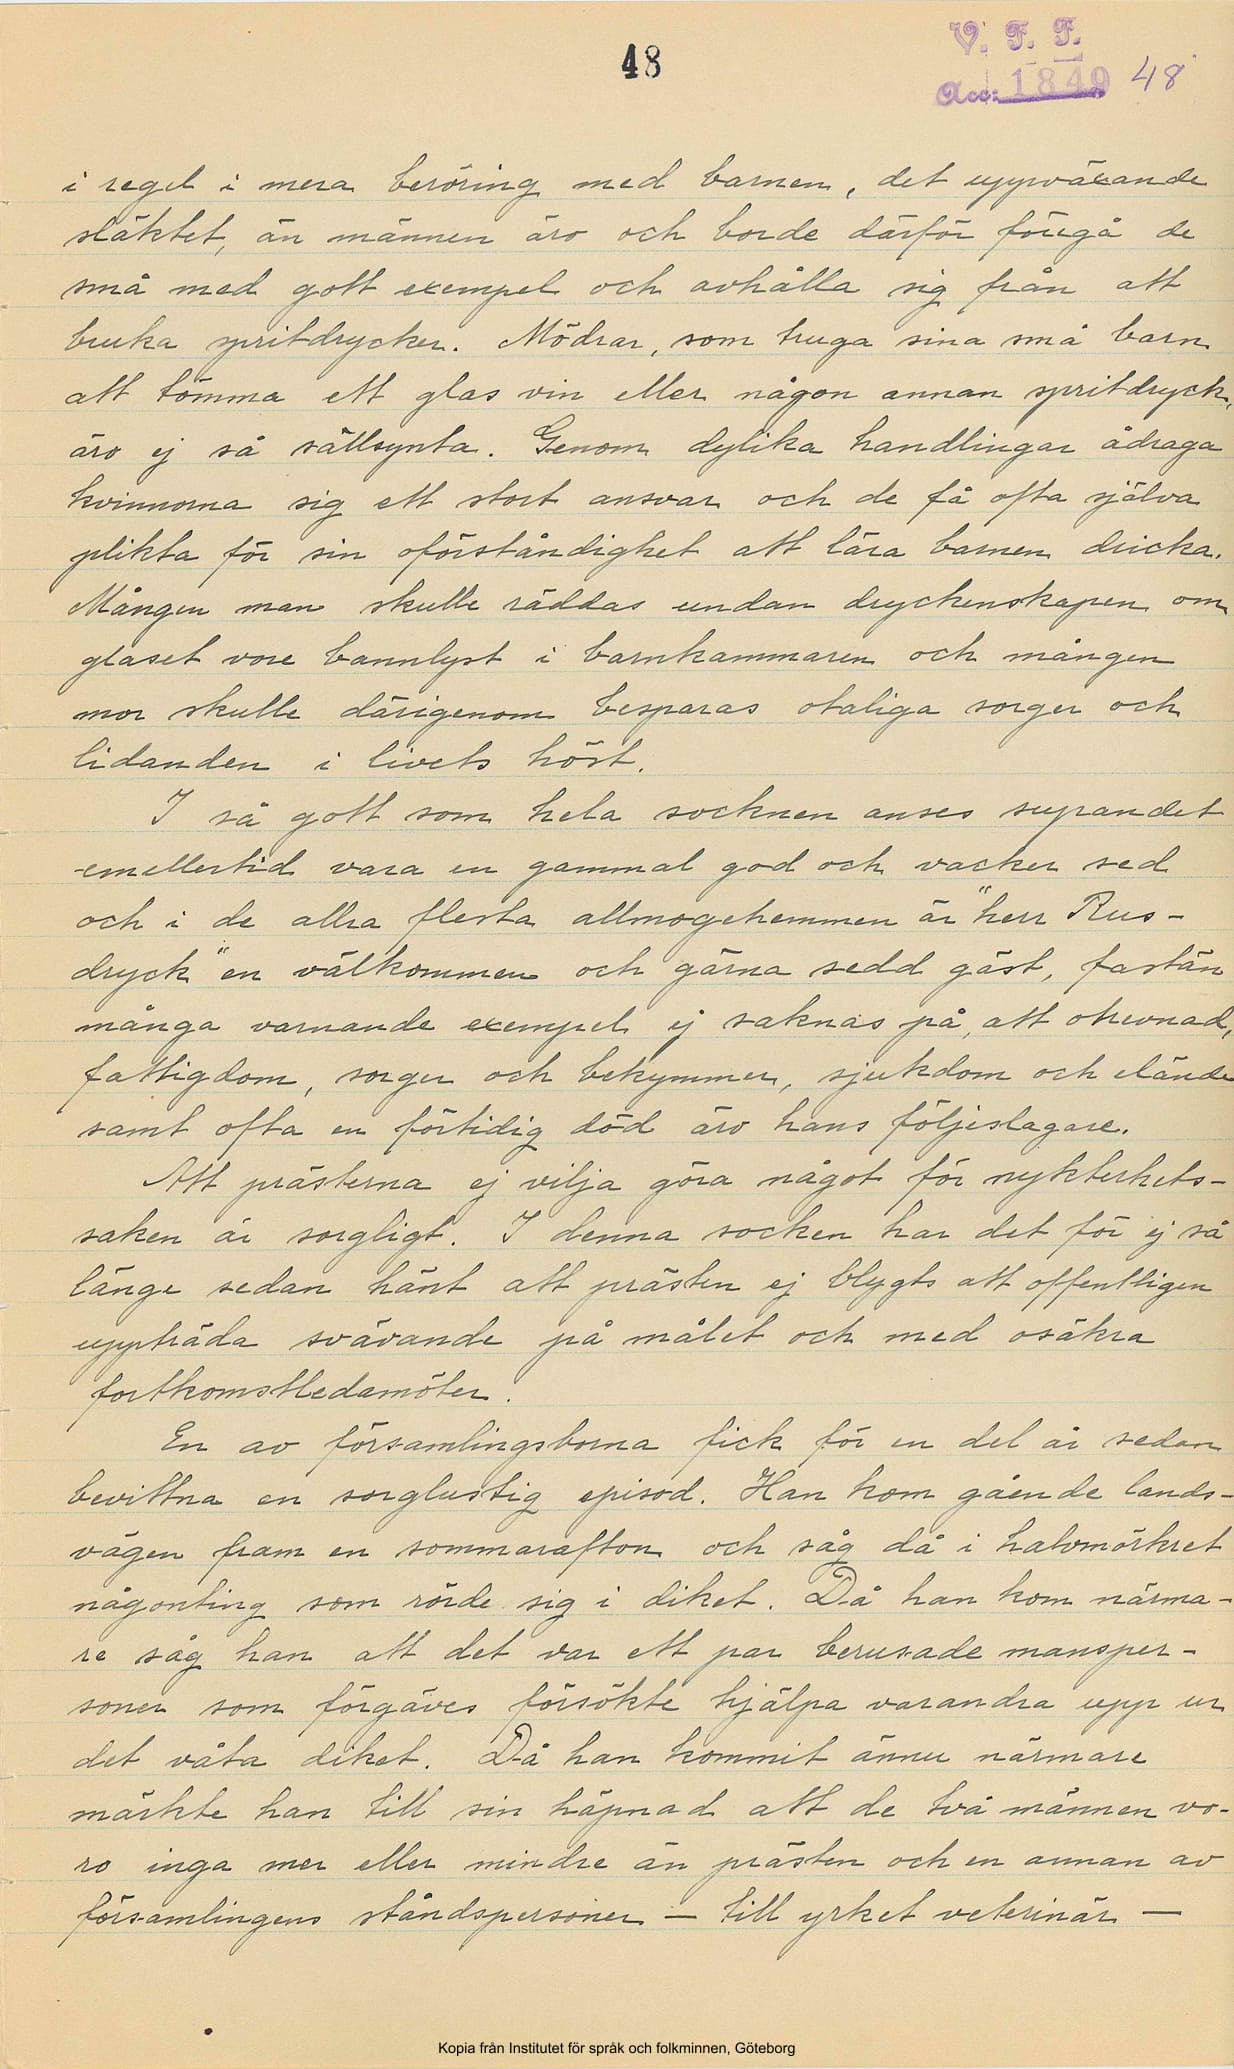 48
V. F. F.
Acc: 1849 48
i regel i mera beröring med barnen, det uppväxande
släktet, än männen äro och borde därför föregå de
små med gott exempel och avhålla sig från att
bruka spritdrycker. Mödrar, som truga sina små barn
att tömma ett glas vin eller någon annan spritdryck,
äro ej så sällsynta. Genom dylika handlingar ådraga
kvinnorna sig ett stort ansvar och de få ofta själva
plikta för sin oförståndighet att lära barnen dricka.
Mången man skulle räddas undan dryckenskapen om
glaset vore bannlyst i barnkammaren och mången
mor skulle därigenom besparas otaliga sorger och
lidanden i livets höst.
I så gott som hela socknen anses supandet
emellertid vara en gammal god och vacker sed
och i de allra flesta allmogehemmen är "herr Rus-
dryck" en välkommen och gärna sedd gäst, fastän
många varnande exempel ej saknas på, att ohevnad,
fattigdom, sorger och bekymmer, sjukdom och elände
samt ofta en förtidig död äro hans följeslagare.
Att prästerna ej vilja göra något för nykterhets-
saken är sorgligt. I denna socken har det för ej så
länge sedan hänt att prästen ej blygts att offentligen
uppträda svävande på målet och med osäkra
fortkomstledamöter.
En av församlingsborna fick för en del år sedan
bevittna en sorglustig episod. Han kom gående lands-
vägen fram en sommarafton och såg då i halvmörkret
någonting som rörde sig i diket. Då han kom närma-
re såg han att det var ett par berusade mansper-
soner som förgäves försökte hjälpa varandra upp ur
det våta diket. Då han kommit ännu närmare
märkte han till sin häpnad att de två männen vo-
ro inga mer eller mindre än prästen och en annan av
församlingens ståndspersoner — till yrket veterinär —
Kopia från Institutet för språk och folkminnen, Göteborg